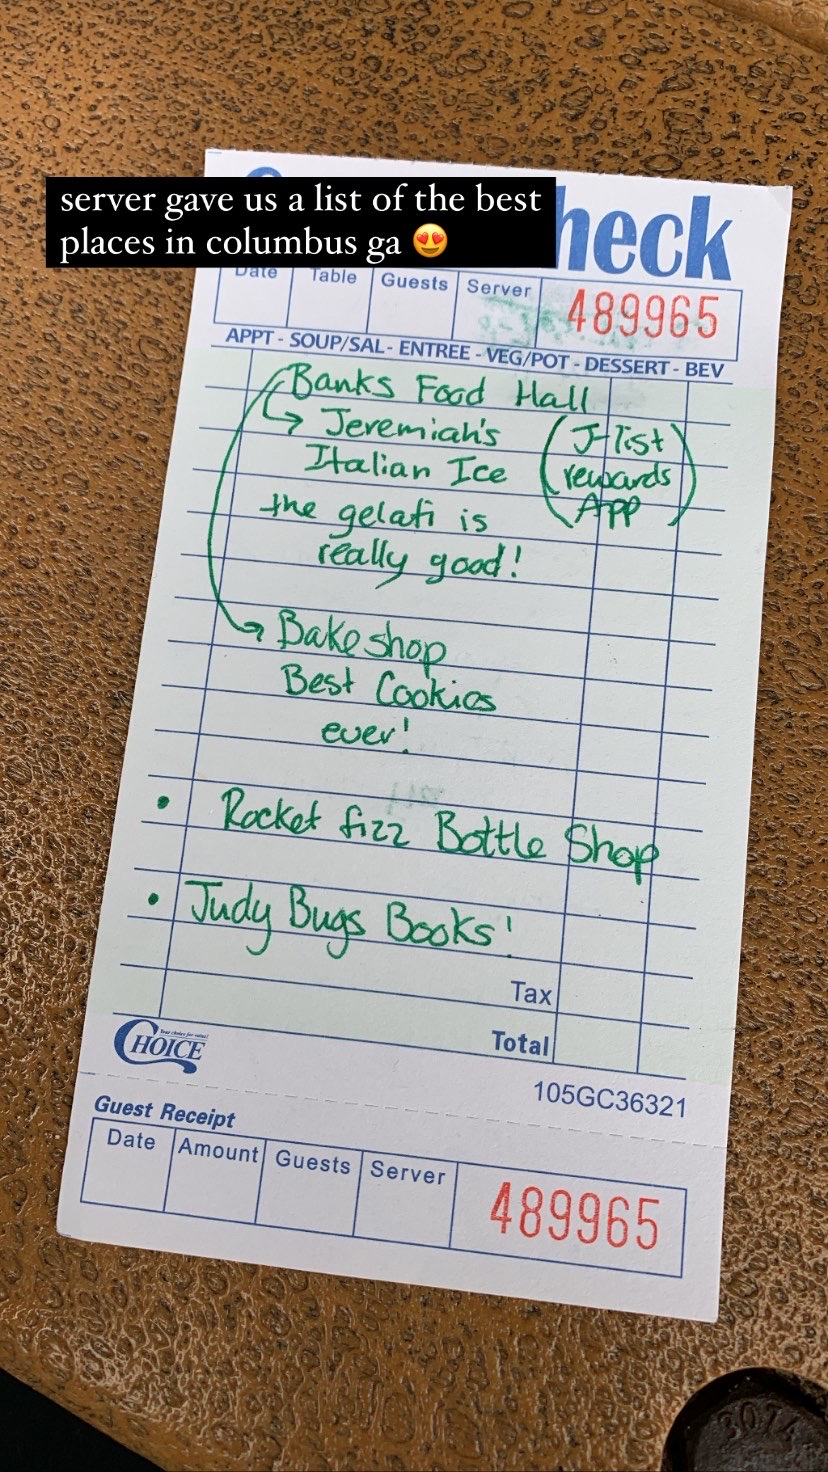 server gave us a list of the best
places in columbus ga 😍
heck
Date Table Guests Server 489965
APPT - SOUP/SAL - ENTREE - VEG/POT - DESSERT - BEV
Banks Food Hall
Jeremiah's (J-list
Italian Ice rewards
the gelati is App)
really good!
Bakeshop
Best Cookies
ever!
• Rocket fizz Bottle Shop
• Judy Bugs Books!
Tax
Total
Your choice for value!
CHOICE
105GC36321
Guest Receipt
Date Amount Guests Server 489965
3074